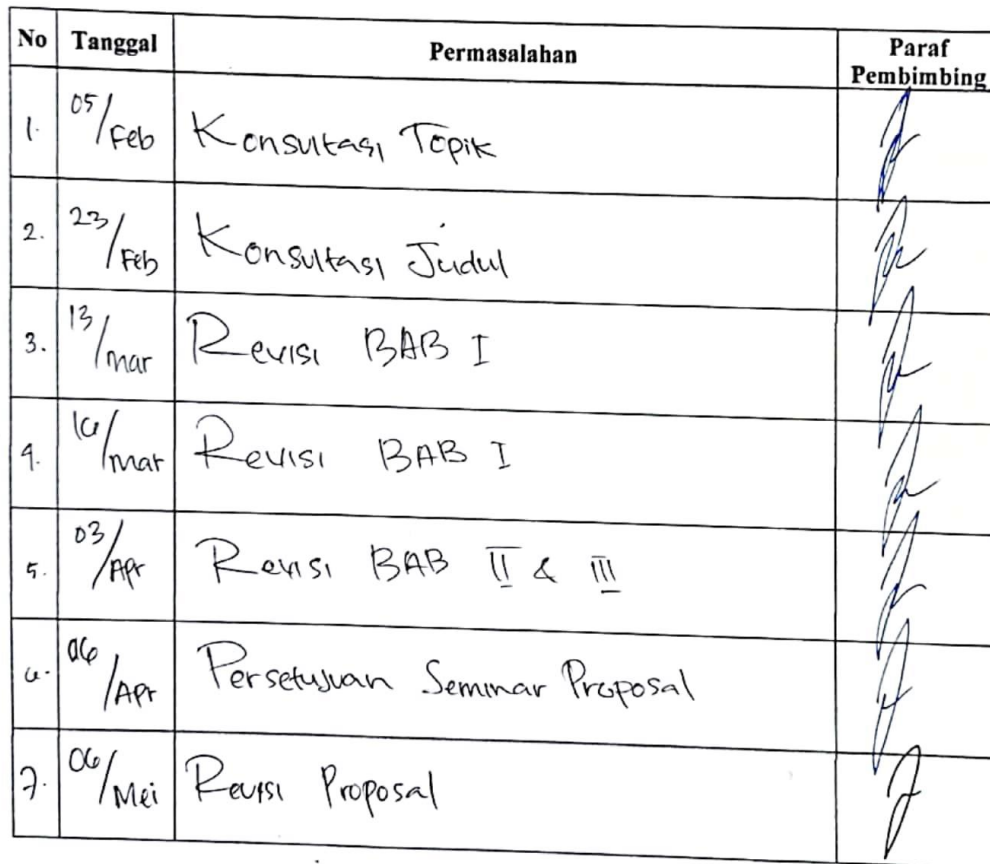 No Tanggal Permasalahan Paraf Pembimbing
1. 05/Feb Konsultasi Topik
2. 23/Feb Konsultasi Judul
3. 13/Mar Revisi BAB I
4. 16/Mar Revisi BAB I
5. 03/Apr Revisi BAB II & III
6. 06/Apr Persetujuan Seminar Proposal
7. 06/Mei Revisi Proposal